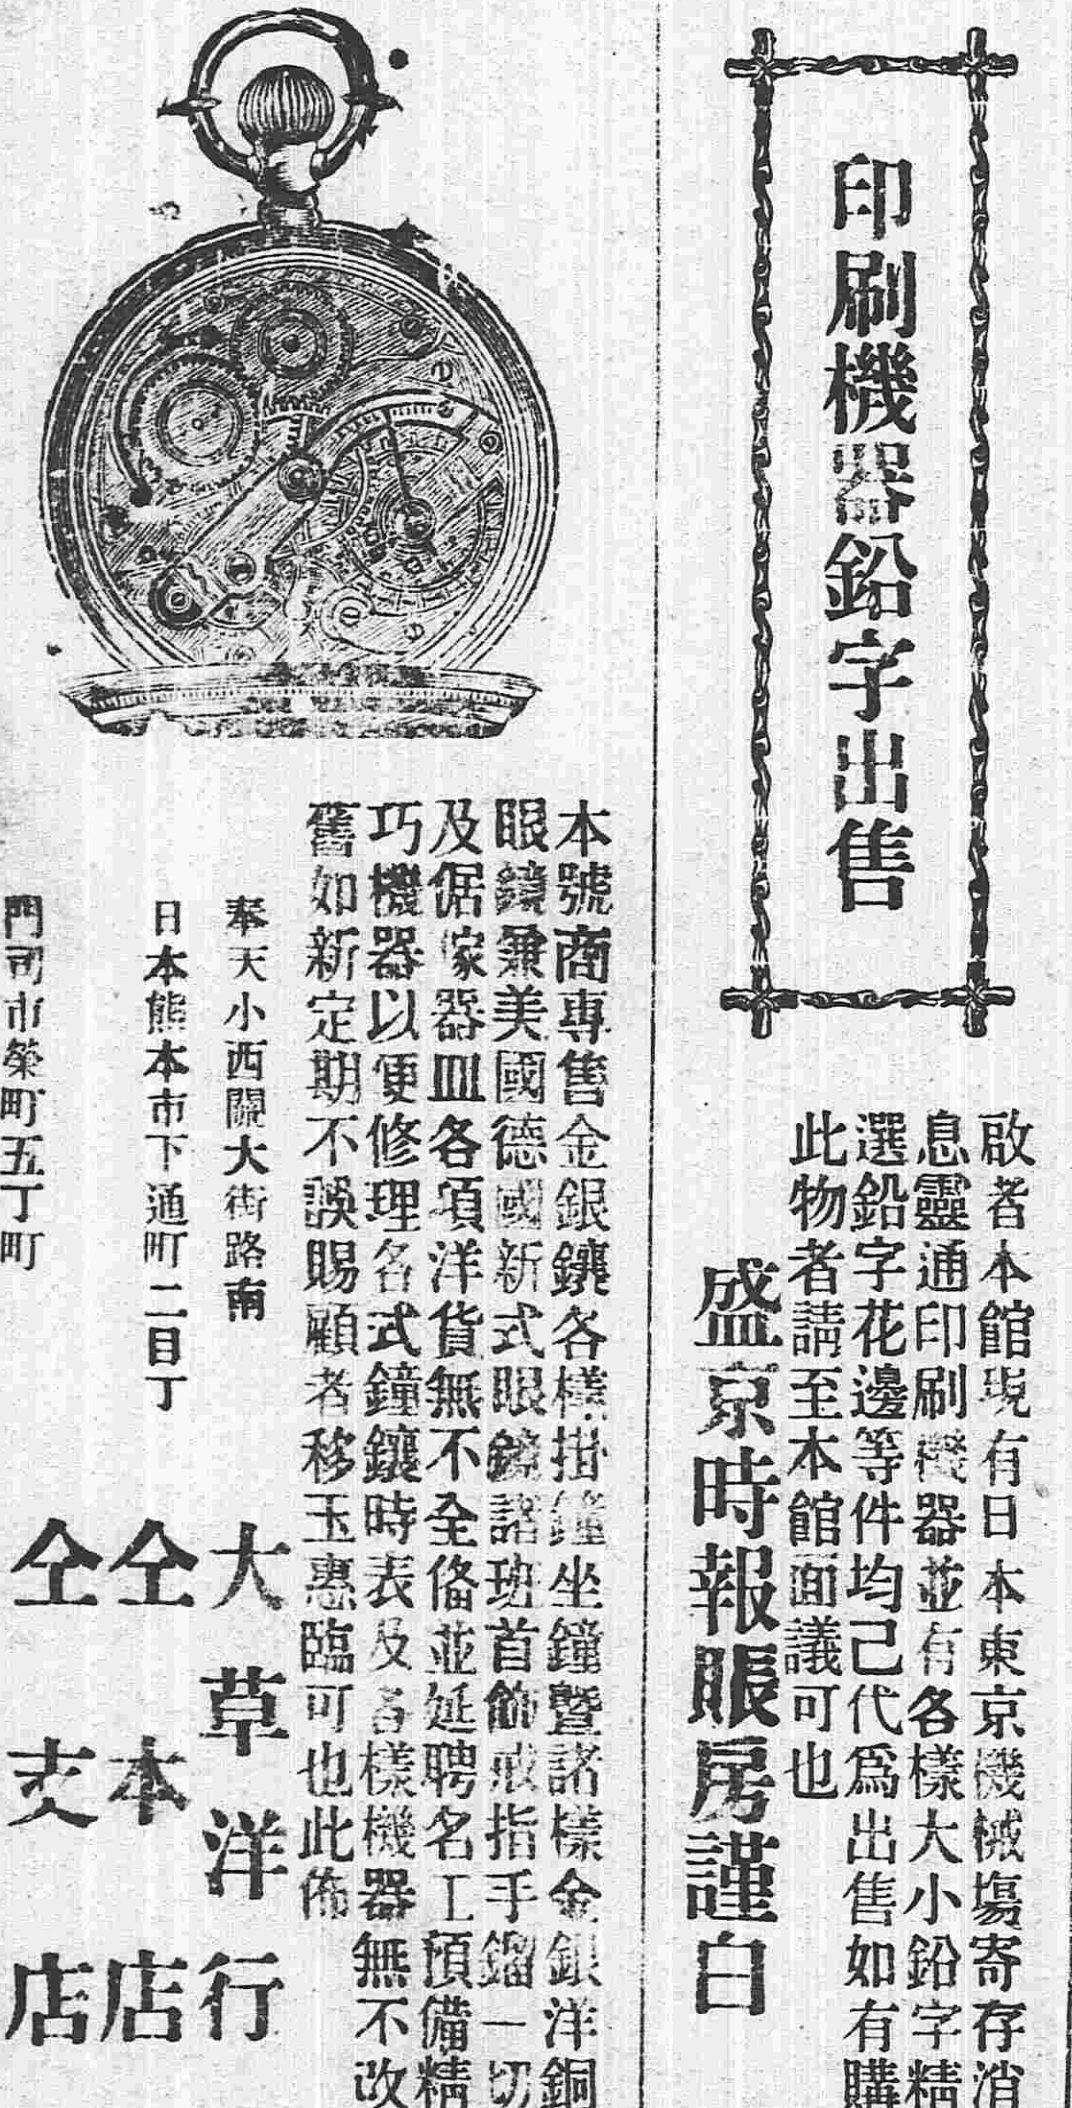 印刷機器鉛字出售
啟者本館現有日本東京機械塲寄存消
息靈通印刷機器並有各樣大小鉛字精
選鉛字花邊等件均己代爲出售如有購
此物者請至本館面議可也
盛京時報賬房謹白
本號商專售金銀鑲各樣掛鐘坐鐘暨諸樣金銀洋銅
眼鏡兼美國德國新式眼鏡諸班首飾戒指手鎦一切
及倨傢器皿各項洋貨無不全俻並延聘名工預備精
巧機器以便修理各式鐘鑲時表及各樣機器無不改
舊如新定期不誤賜顧者移玉惠臨可也此佈
奉天小西關大街路南
大草洋行
日本熊本市下通町二目丁
仝本店
門司市榮町五丁町
仝支店